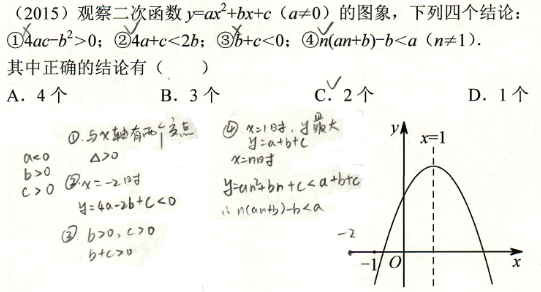 （2015）观察二次函数y=ax²+bx+c（a≠0）的图象，下列四个结论：
①4ac-b²>0；②4a+c<2b；③b+c<0；④n(an+b)-b<a（n≠1）.
其中正确的结论有（　　）
A．4个　B．3个　C．2个　D．1个
①.与x轴有两个交点
△>0
a<0
b>0
c>0
②x=-2时
y=4a-2b+c<0
③.b>0,c>0
b+c>0
④.x=1时,y最大
y=a+b+c
x=n时
y=an²+bn+c<a+b+c
∴n(an+b)-b<a
y
x=1
-2
-1
O
x